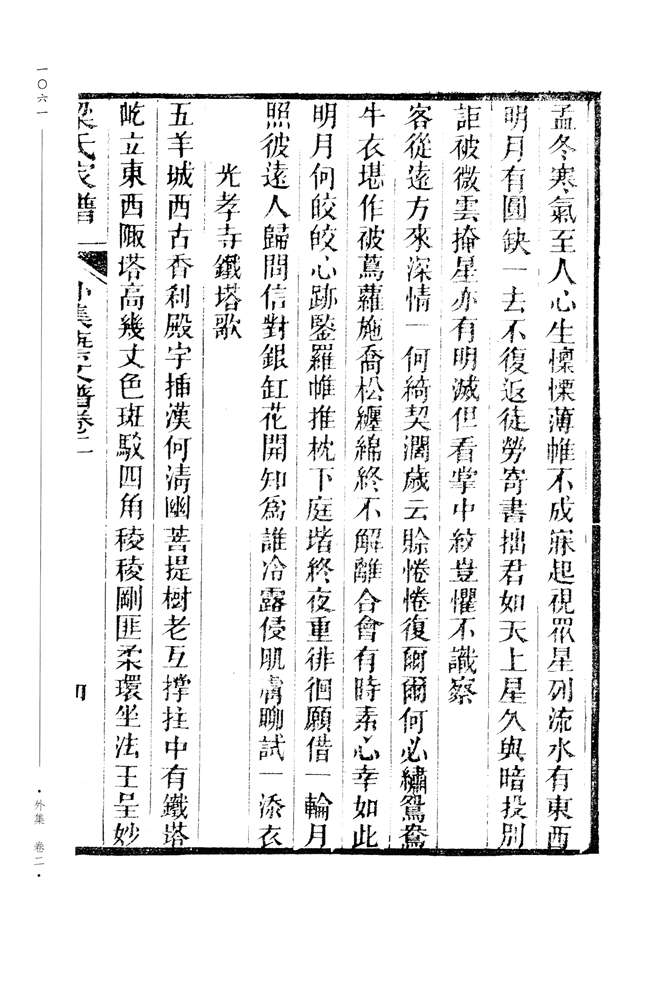 孟冬寒氣至人心生懍慄薄帷不成寐起視眾星列流水有東西
明月有圓缺一去不復返徒勞寄書拙君如天上星久與暗投別
詎被微雲掩星亦有明滅但看掌中紋豈懼不識察
客從遠方來深情一何綺契濶歲云賒惓惓復爾爾何必繡鴛鴦
牛衣堪作被蔦蘿施喬松纏綿終不解離合會有時素心幸如此
明月何皎皎心跡鑒羅帷推枕下庭堦終夜重徘徊願借一輪月
照彼遠人歸問信對銀缸花開知為誰冷露侵肌膚聊試一添衣
光孝寺鐵塔歌
五羊城西古香刹殿宇揷漢何淸幽菩提樹老互撐拄中有鐵塔
屹立東西陬塔高幾丈色斑駁四角稜稜剛匪柔環坐法王呈妙
梁氏家譜
外集
譜卷二
一〇六一
·外集 卷二·